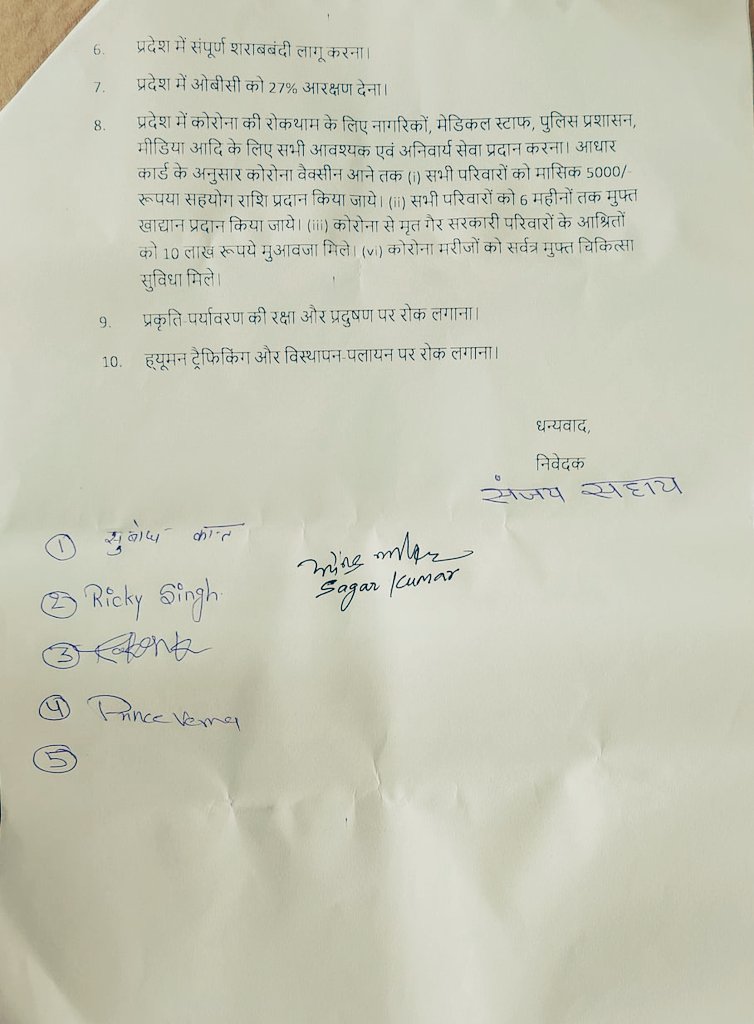 6. प्रदेश में संपूर्ण शराबबंदी लागू करना।
7. प्रदेश में ओबीसी को 27% आरक्षण देना।
8. प्रदेश में कोरोना की रोकथाम के लिए नागरिकों, मेडिकल स्टाफ, पुलिस प्रशासन,
मीडिया आदि के लिए सभी आवश्यक एवं अनिवार्य सेवा प्रदान करना। आधार
कार्ड के अनुसार कोरोना वैक्सीन आने तक (i) सभी परिवारों को मासिक 5000/-
रूपया सहयोग राशि प्रदान किया जाये। (ii) सभी परिवारों को 6 महीनों तक मुफ्त
खाद्यान प्रदान किया जाये। (iii) कोरोना से मृत गैर सरकारी परिवारों के आश्रितों
को 10 लाख रूपये मुआवजा मिले। (vi) कोरोना मरीजों को सर्वत्र मुफ्त चिकित्सा
सुविधा मिले।
9. प्रकृति-पर्यावरण की रक्षा और प्रदुषण पर रोक लगाना।
10. ह्यूमन ट्रैफिकिंग और विस्थापन-पलायन पर रोक लगाना।
धन्यवाद,
निवेदक
संजय सहाय
① सुबोध कान्त
② Ricky Singh
Sagar Kumar
③
④ Prince Verma
⑤